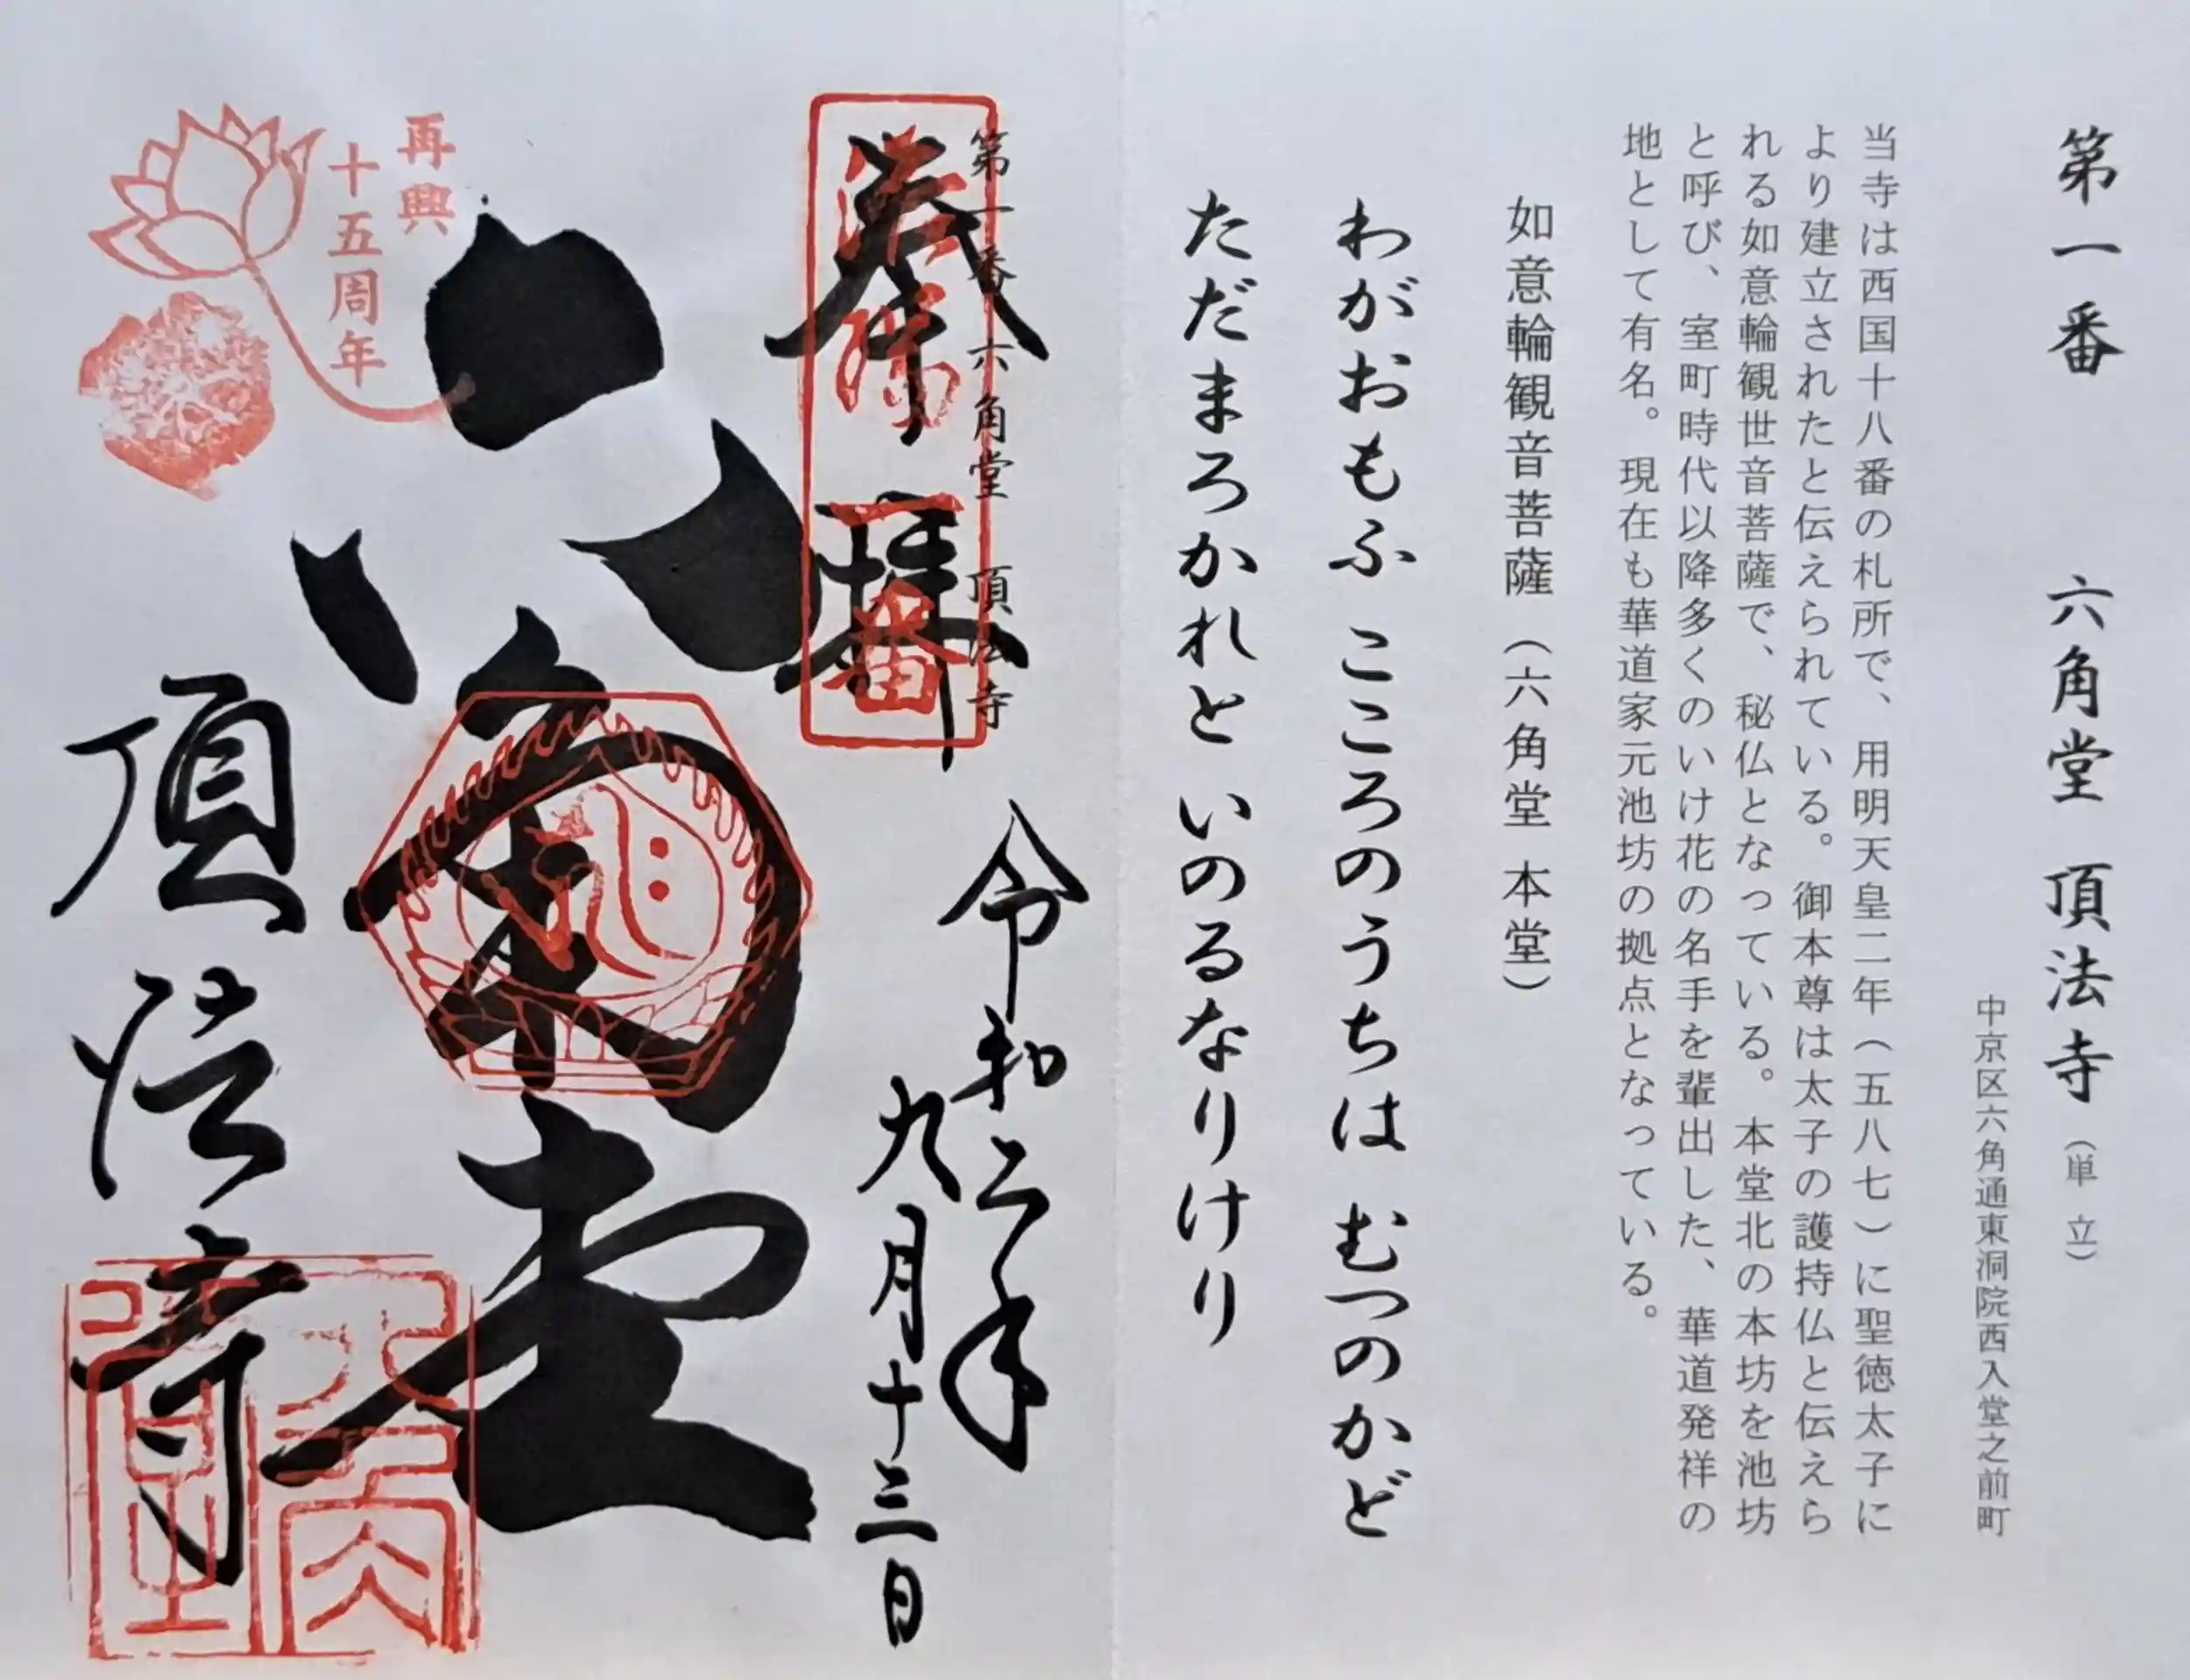 第一番 六角堂 頂法寺（単立）
中京区六角通東洞院西入堂之前町
当寺は西国十八番の札所で、用明天皇二年（五八七）に聖徳太子に
より建立されたと伝えられている。御本尊は太子の護持仏と伝えら
れる如意輪観世音菩薩で、秘仏となっている。本堂北の本坊を池坊
と呼び、室町時代以降多くのいけ花の名手を輩出した、華道発祥の
地として有名。現在も華道家元池坊の拠点となっている。
如意輪観音菩薩（六角堂 本堂）
わがおもふ こころのうちは むつのかど
ただまろかれと いのるなりけり
第一番 六角堂 頂法寺
奉拝
洛陽一番
令和二年
九月十三日
六角堂
頂法寺
再興
十五周年
六角堂